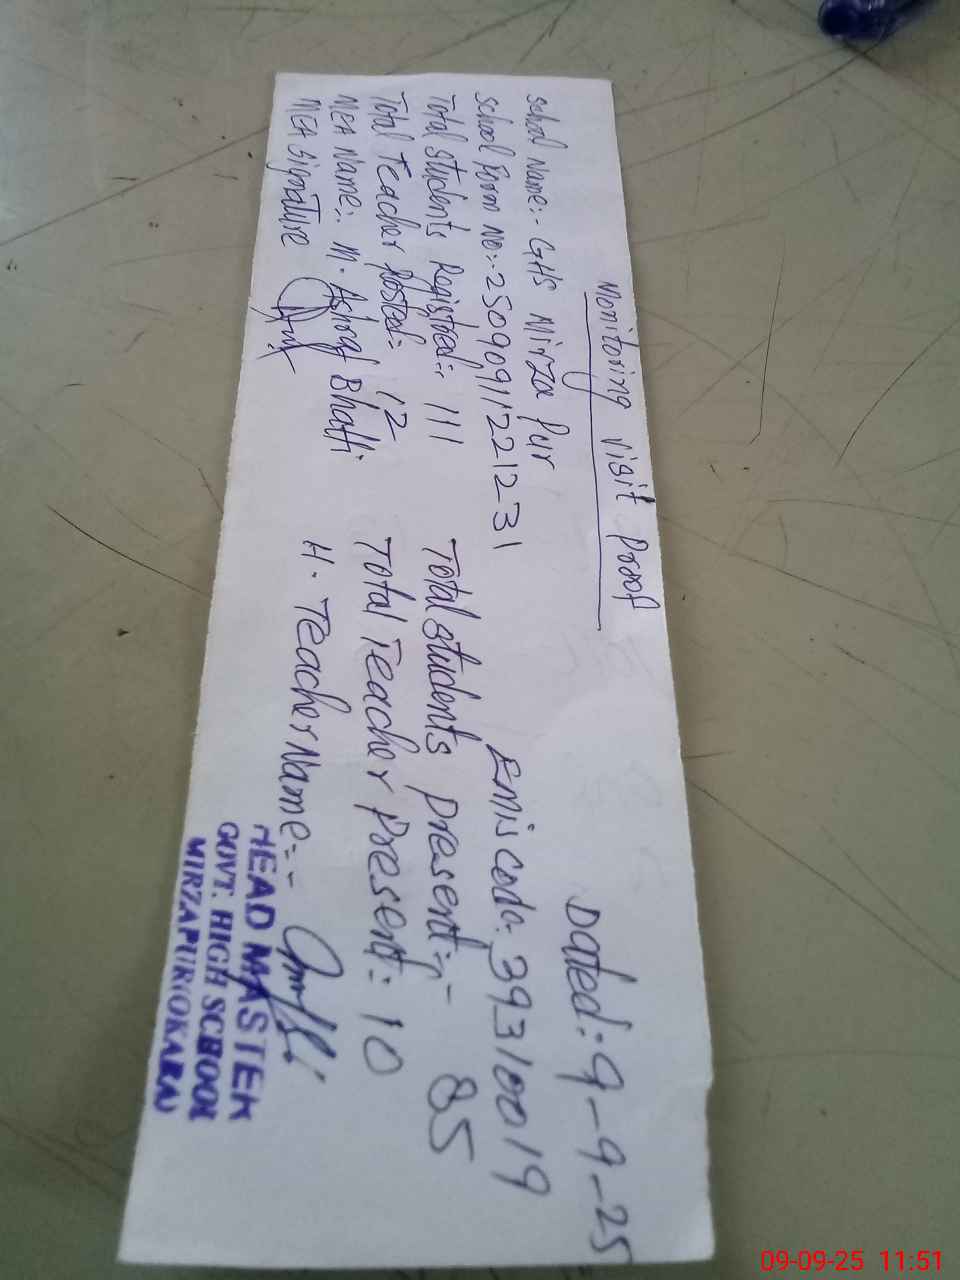 Monitoring visit proof
Dated:- 9-9-25
School Name:- GHS Mirza Pur
School Form No:- 25090911221231 Emis code: 39310019
Total Students Registred:- 111 Total students present:- 85
Total Teacher Posted:- 12 Total Teacher Present:- 10
MEA Name:- M. Ashraf Bhatti H. Teacher Name:-
MEA Signature
HEAD MASTER
GOVT. HIGH SCHOOL
MIRZAPUR(OKARA)
09-09-25 11:51